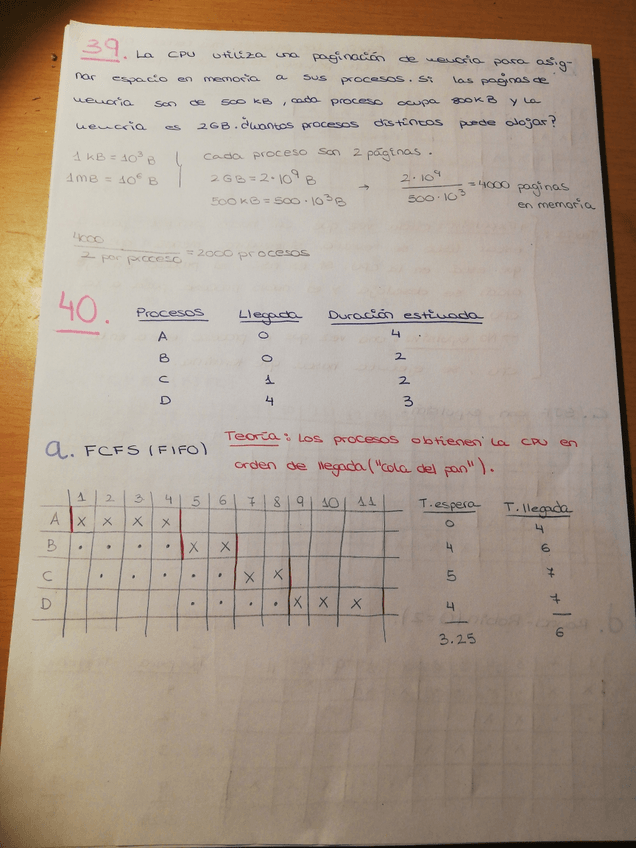 39. La CPU utiliza una paginación de memoria para asig-
nar espacio en memoria a sus procesos. Si las páginas de
memoria son de 500 KB, cada proceso ocupa 800KB y la
memoria es 2GB. ¿Cuántos procesos distintos puede alojar?
1 KB = 10³ B
1MB = 10⁶ B
Cada proceso son 2 páginas.
2GB = 2·10⁹ B
500 KB = 500·10³ B
→ 2·10⁹ / 500·10³ = 4000 paginas
en memoria
4000 / 2 por proceso = 2000 procesos
40. Procesos Llegada Duración estimada
A 0 4
B 0 2
C 1 2
D 4 3
a. FCFS (FIFO) Teoría: Los procesos obtienen la CPU en
orden de llegada ("Cola del pan").
1 2 3 4 5 6 7 8 9 10 11 T. espera T. llegada
A x x x x 0 4
B . . . . x x 4 6
C . . . . . x x 5 7
D . . . . x x x 4 7
3.25 6